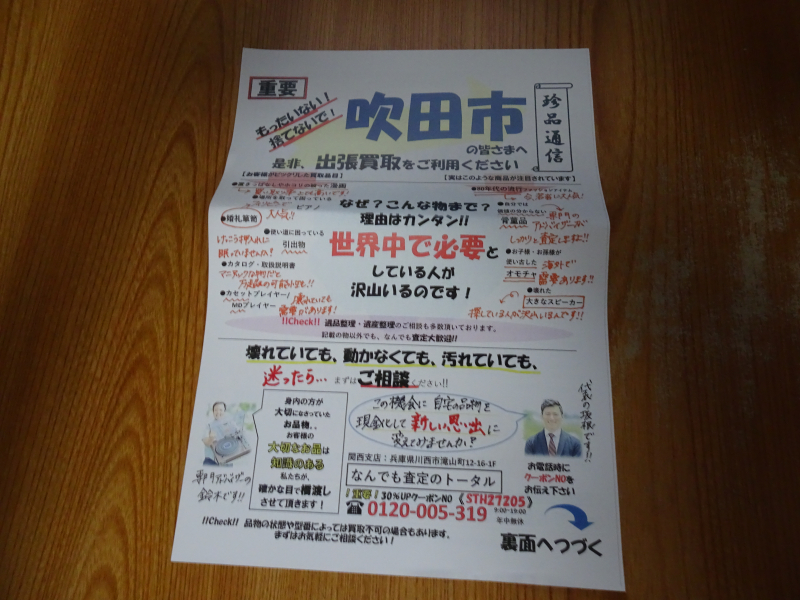 重要
もったいない!
捨てないで!
吹田市
の皆さまへ
珍品通信
是非、出張買取をご利用ください
【お客様がビックリした買取品目】
【実はこのような商品が注目されています】
なぜ?こんな物まで?
理由はカンタン!!
世界中で必要と
している人が
沢山いるのです!
ピアノ
大人気!!
●婚礼箪笥
●使い道に困っている
引出物
けっこう押入れに
眠っていませんか?
●カタログ・取扱説明書
●カセットプレイヤー/
MDプレイヤー
壊れていても
需要があります!
骨董品
しっかりと査定します!!
●お子様・お孫様が
使い古した
オモチャ
海外で
需要あります!!
●壊れた
大きなスピーカー
探している人が沢山いるんです!!
!!Check!! 遺品整理・遺産整理のご相談も多数頂いております。
記載の物以外でも、なんでも査定大歓迎!!
壊れていても、動かなくても、汚れていても、
迷ったら… まずはご相談ください!!
身内の方が
大切になさっていた
お品物、、
お客様の
大切なお品は
知識のある
私たちが、
確かな目で橋渡し
させて頂きます!
鈴木です!!
この機会に自宅の品物を
現金化して新しい思い出に
変えてみませんか?
代表の坂根です!!
関西支店:兵庫県川西市滝山町12-16-1F
なんでも査定のトータル
!重要! 30%UPクーポンNO《STH27205》
☎0120-005-319
9:00~19:00
年中無休
お電話時に
クーポンNOを
お伝え下さい
!!Check!! 品物の状態や型番によっては買取不可の場合もあります。
まずはお気軽にご相談ください!
裏面へつづく